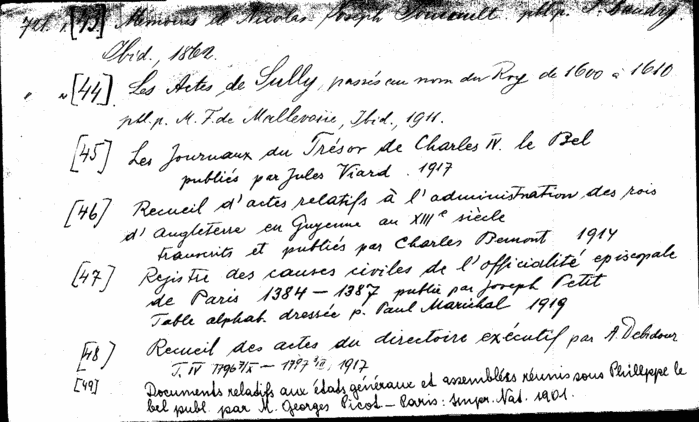 [43]. Mémoires de Nicolas Joseph Foucault. pbl. p. F. Baudry
Ibid., 1862.
" " [44]. Les Actes de Sully, passés au nom du Roy de 1600 à 1610
pbl. p. M. F. de Mallevoüe, Ibid., 1911.
[45] Les Journaux du Trésor de Charles IV. le Bel
publiés par Jules Viard . 1917
[46] Recueil d'actes relatifs à l'administration des rois
d'Angleterre en Guyenne au XIIIe siècle
transcrits et publiés par Charles Bemont 1914
[47] Registre des causes civiles de l'officialité episcopale
de Paris 1384 – 1387 publié par Joseph Petit
Table alphab. dressée p. Paul Marichal 1919
[48] Recueil des actes du directoire exécutif par A. Debidour
T. IV 1917
[49] Documents relatifs aux états généraux et assemblées réunis sous Philippe le
bel publ. par M. Georges Picot – Paris: Impr. Nat. 1901.